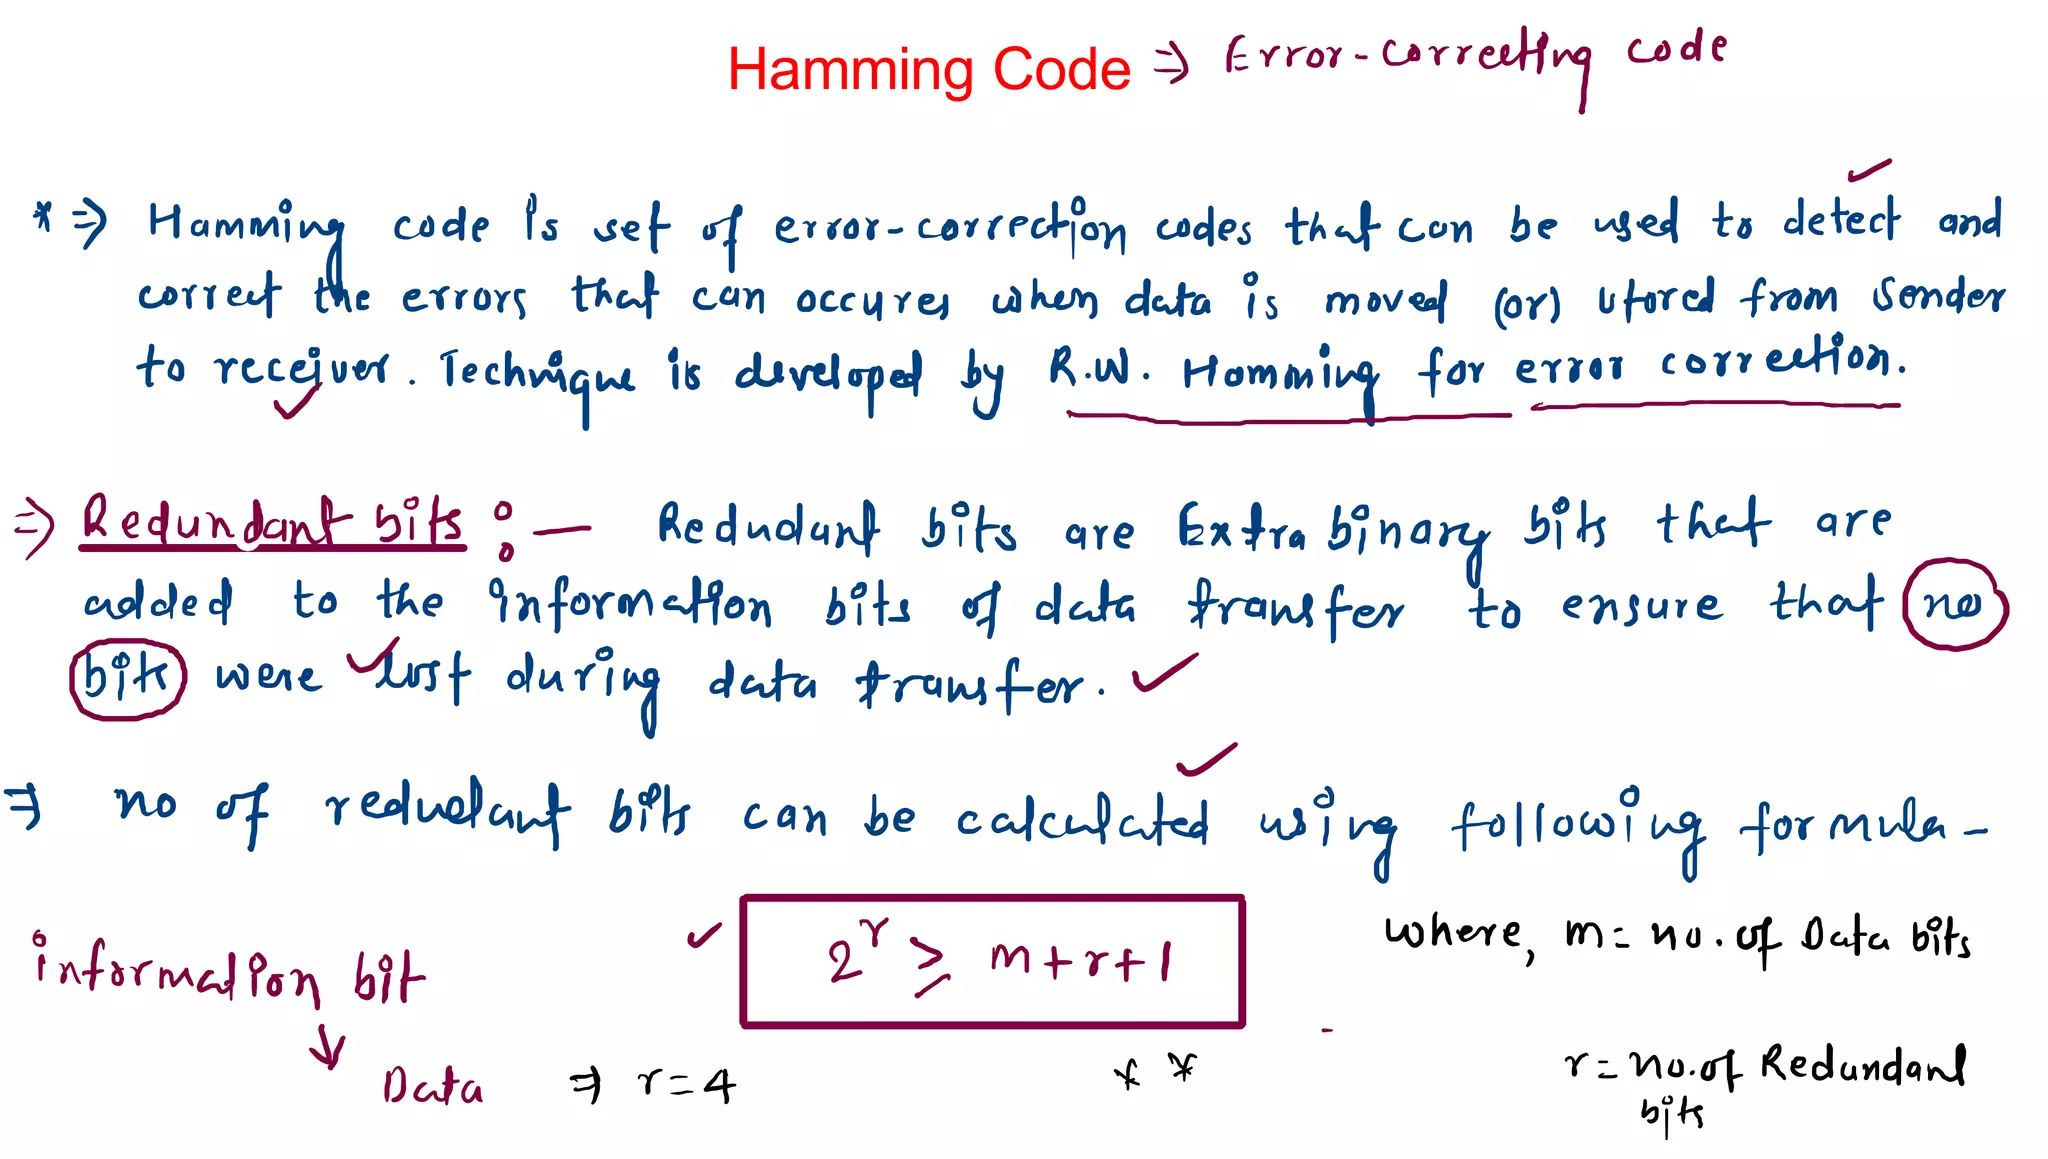 Hamming Code ⇒ Error-correcting code
* ⇒ Hamming code is set of error-correction codes that can be used to detect and
correct the errors that can occures when data is moved (or) stored from Sender
to receiver. Technique is developed by R.W. Hamming for error correction.
⇒ Redundant bits :— Redudant bits are Extra binary bits that are
added to the information bits of data transfer to ensure that no
bits were lost during data transfer.
⇒ no of redudant bits can be calculated using following formula -
2^r ≥ m+r+1
where, m = no. of Data bits
information bit
↓
Data ⇒ r=4
* *
r = no. of Redundant
bits